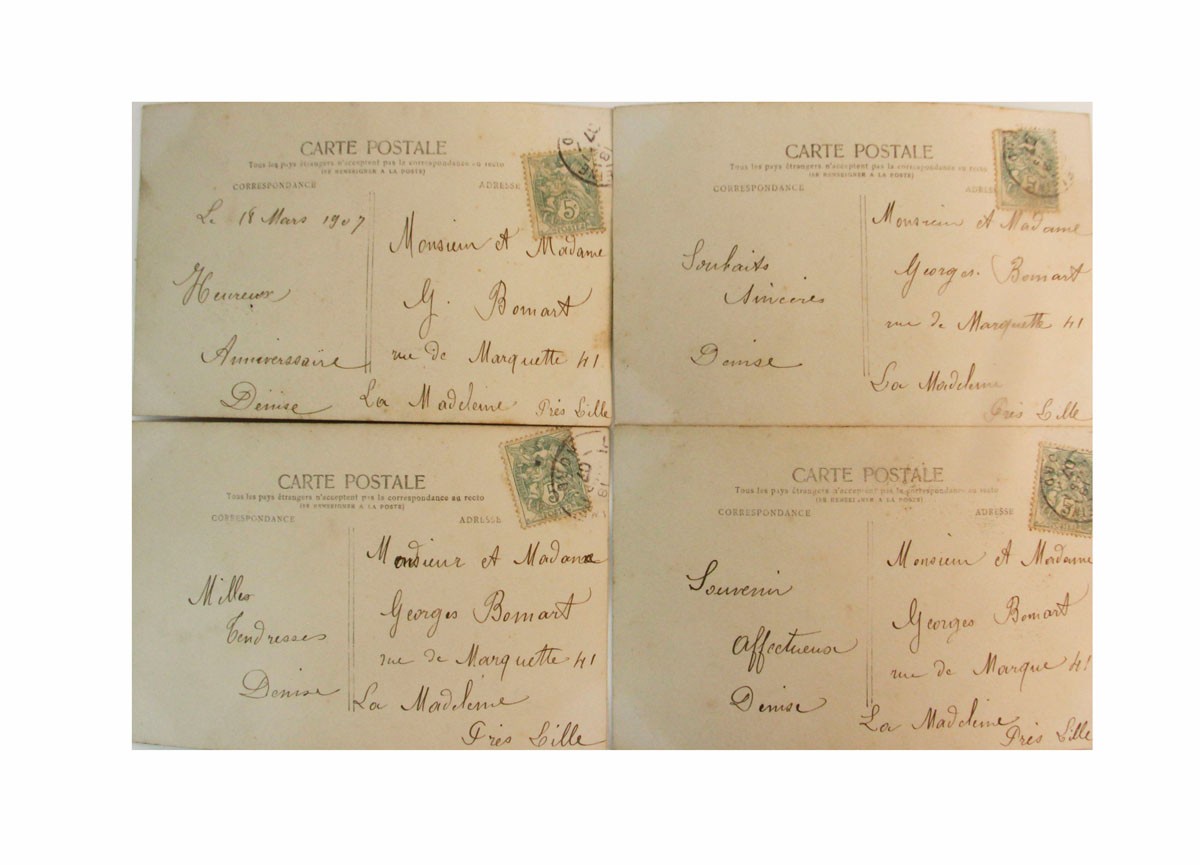 CARTE POSTALE
Tous les pays étrangers n'acceptent pas la correspondance au recto
(SE RENSEIGNER A LA POSTE)
CORRESPONDANCE ADRESSE
Le 18 Mars 1907
Heureux
Anniverssaire
Denise
Monsieur et Madame
G. Bomart
rue de Marquette 41
La Madeleine
Près Lille
5
CARTE POSTALE
Tous les pays étrangers n'acceptent pas la correspondance au recto
(SE RENSEIGNER A LA POSTE)
CORRESPONDANCE ADRESSE
Souhaits
Sincères
Denise
Monsieur et Madame
Georges Bomart
rue de Marquette 41
La Madeleine
Près Lille
CARTE POSTALE
Tous les pays étrangers n'acceptent pas la correspondance au recto
(SE RENSEIGNER A LA POSTE)
CORRESPONDANCE ADRESSE
Milles
Tendresses
Denise
Monsieur et Madame
Georges Bomart
rue de Marquette 41
La Madeleine
Près Lille
5
CARTE POSTALE
Tous les pays étrangers n'acceptent pas la correspondance au recto
(SE RENSEIGNER A LA POSTE)
CORRESPONDANCE ADRESSE
Souvenir
Affectueux
Denise
Monsieur et Madame
Georges Bomart
rue de Marque 41
La Madeleine
Près Lille